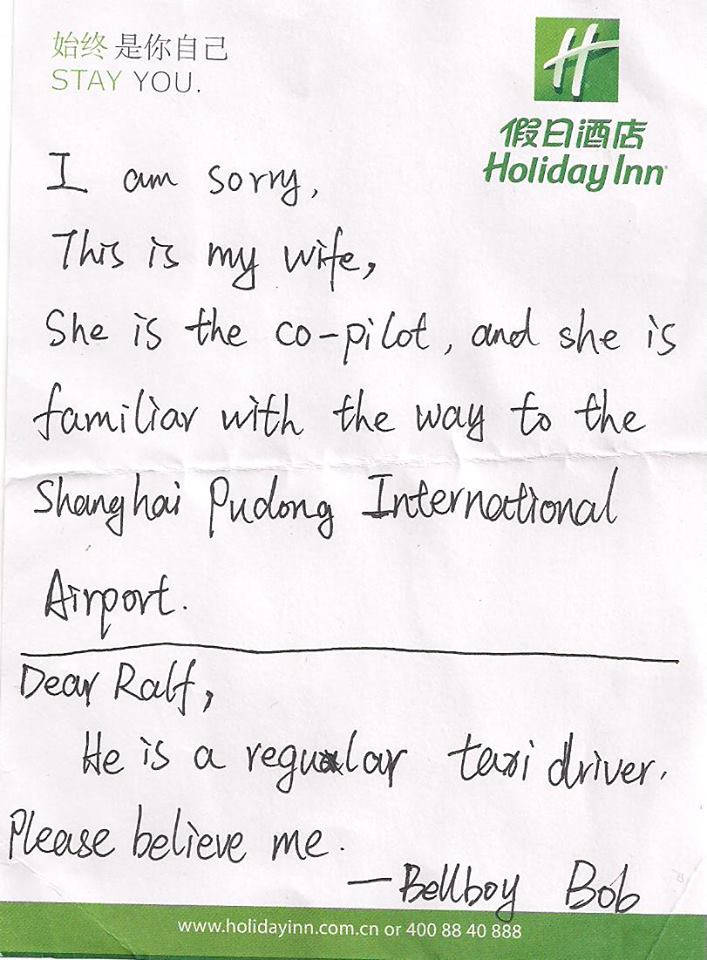 始终是你自己
STAY YOU.
H
假日酒店
Holiday Inn
I am sorry,
This is my wife,
She is the co-pilot, and she is
familiar with the way to the
Shanghai Pudong International
Airport.
Dear Ralf,
He is a regular taxi driver.
Please believe me.
— Bellboy Bob
www.holidayinn.com.cn or 400 88 40 888